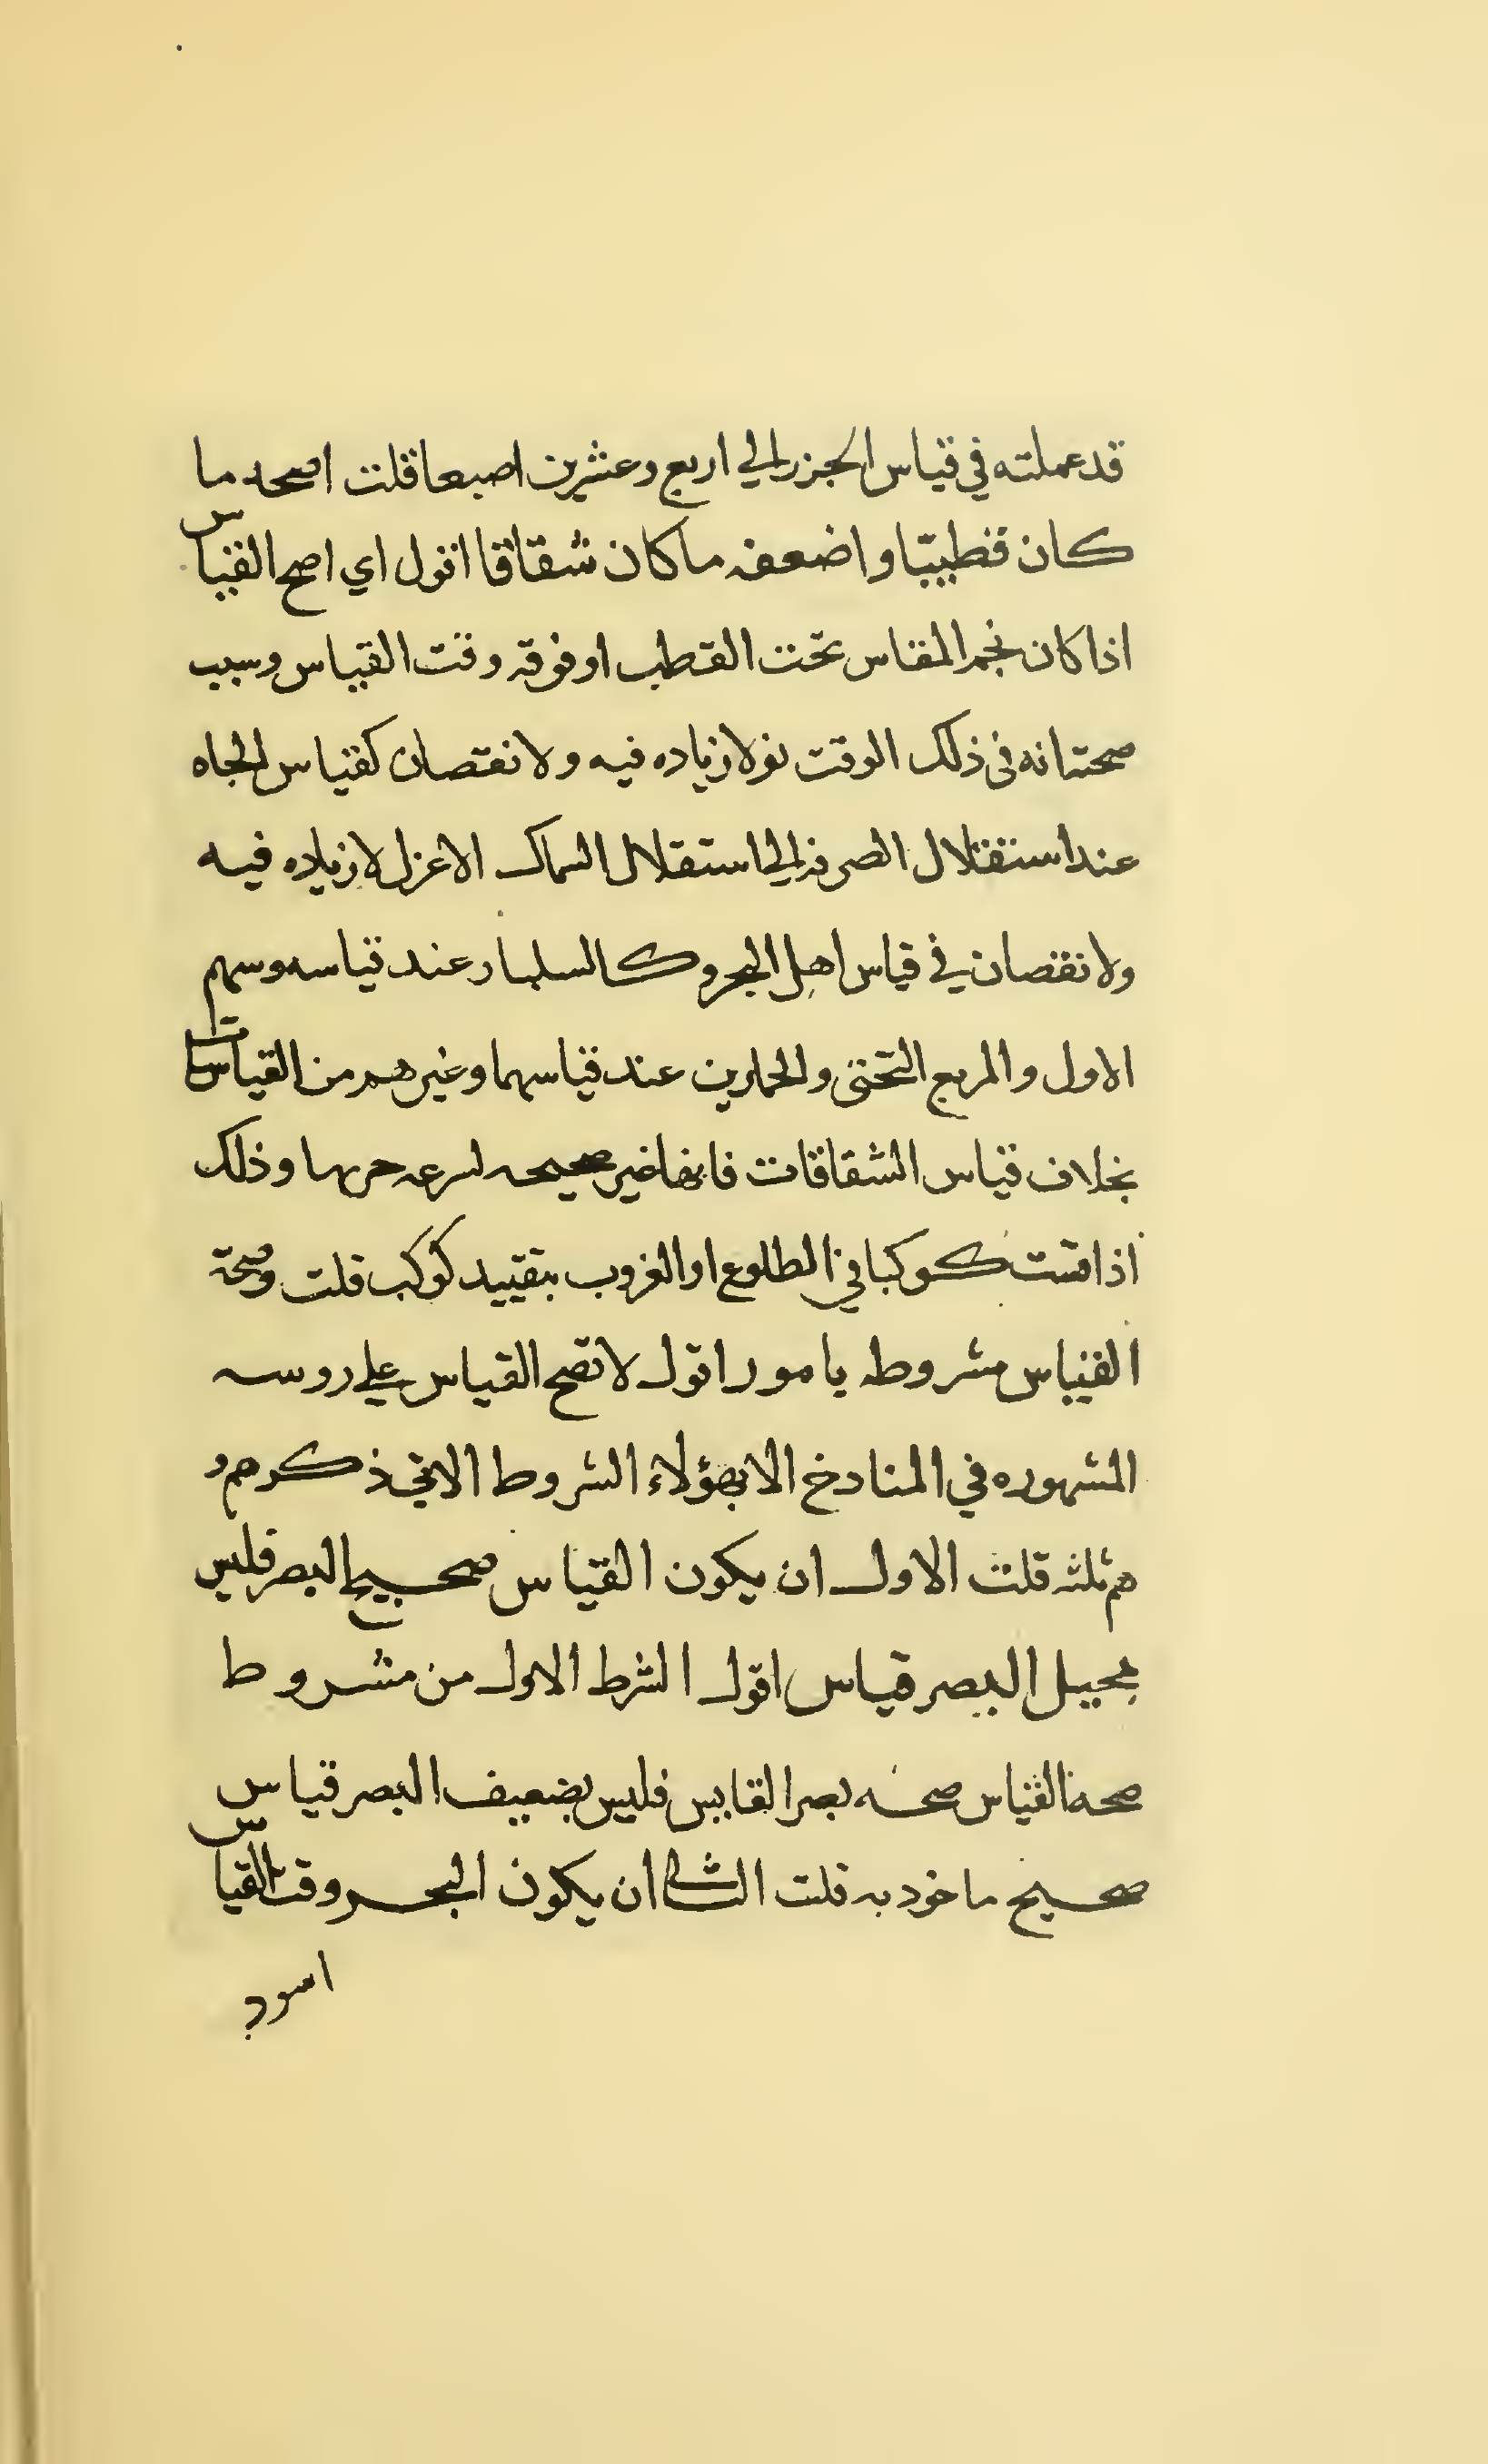 قد عملته في قياس الجزر الي اربع وعشرين اصبعا قلت اصحه ما
كان قطبيّا واضعفه ما كان شقاقا اقول اي اصح القياس
اذا كان نجم المقاس تحت القطب او فوقه وقت القياس وسبب
صحته انه في ذلك الوقت لا زياده فيه ولا نقصان كقياس الجاه
عند استقلال الصرفه الي استقلال السماك الاعزل لا زياده فيه
ولا نقصان في قياس اهل البحر وكالسلبار عند قياسه وسهم
الاول والمربع التحتي والحمارين عند قياسهما وغيرهم من القياسات
بخلاف قياس الشقاقات فانها غير صحيحه لسرعه جريها وذلك
اذا قست كوكبا في الطلوع او الغروب بتقييد كوكب قلت وصحة
القياس مشروطه بامور اقول لا تصح القياس علي روسه
المشهوره في المنادخ الا بهؤلاء الشروط الاتي ذكرهم و
هم ثلثه قلت الاول ان يكون القياس صحيح البصر فليس
بحيل البصر قياس اقول الشرط الاول من مشروط
صحة القياس صحه بصر القايس فليس بضعيف البصر قياس
صحيح ماخود به قلت الثاني ان يكون البحر وقت القياس
اسود